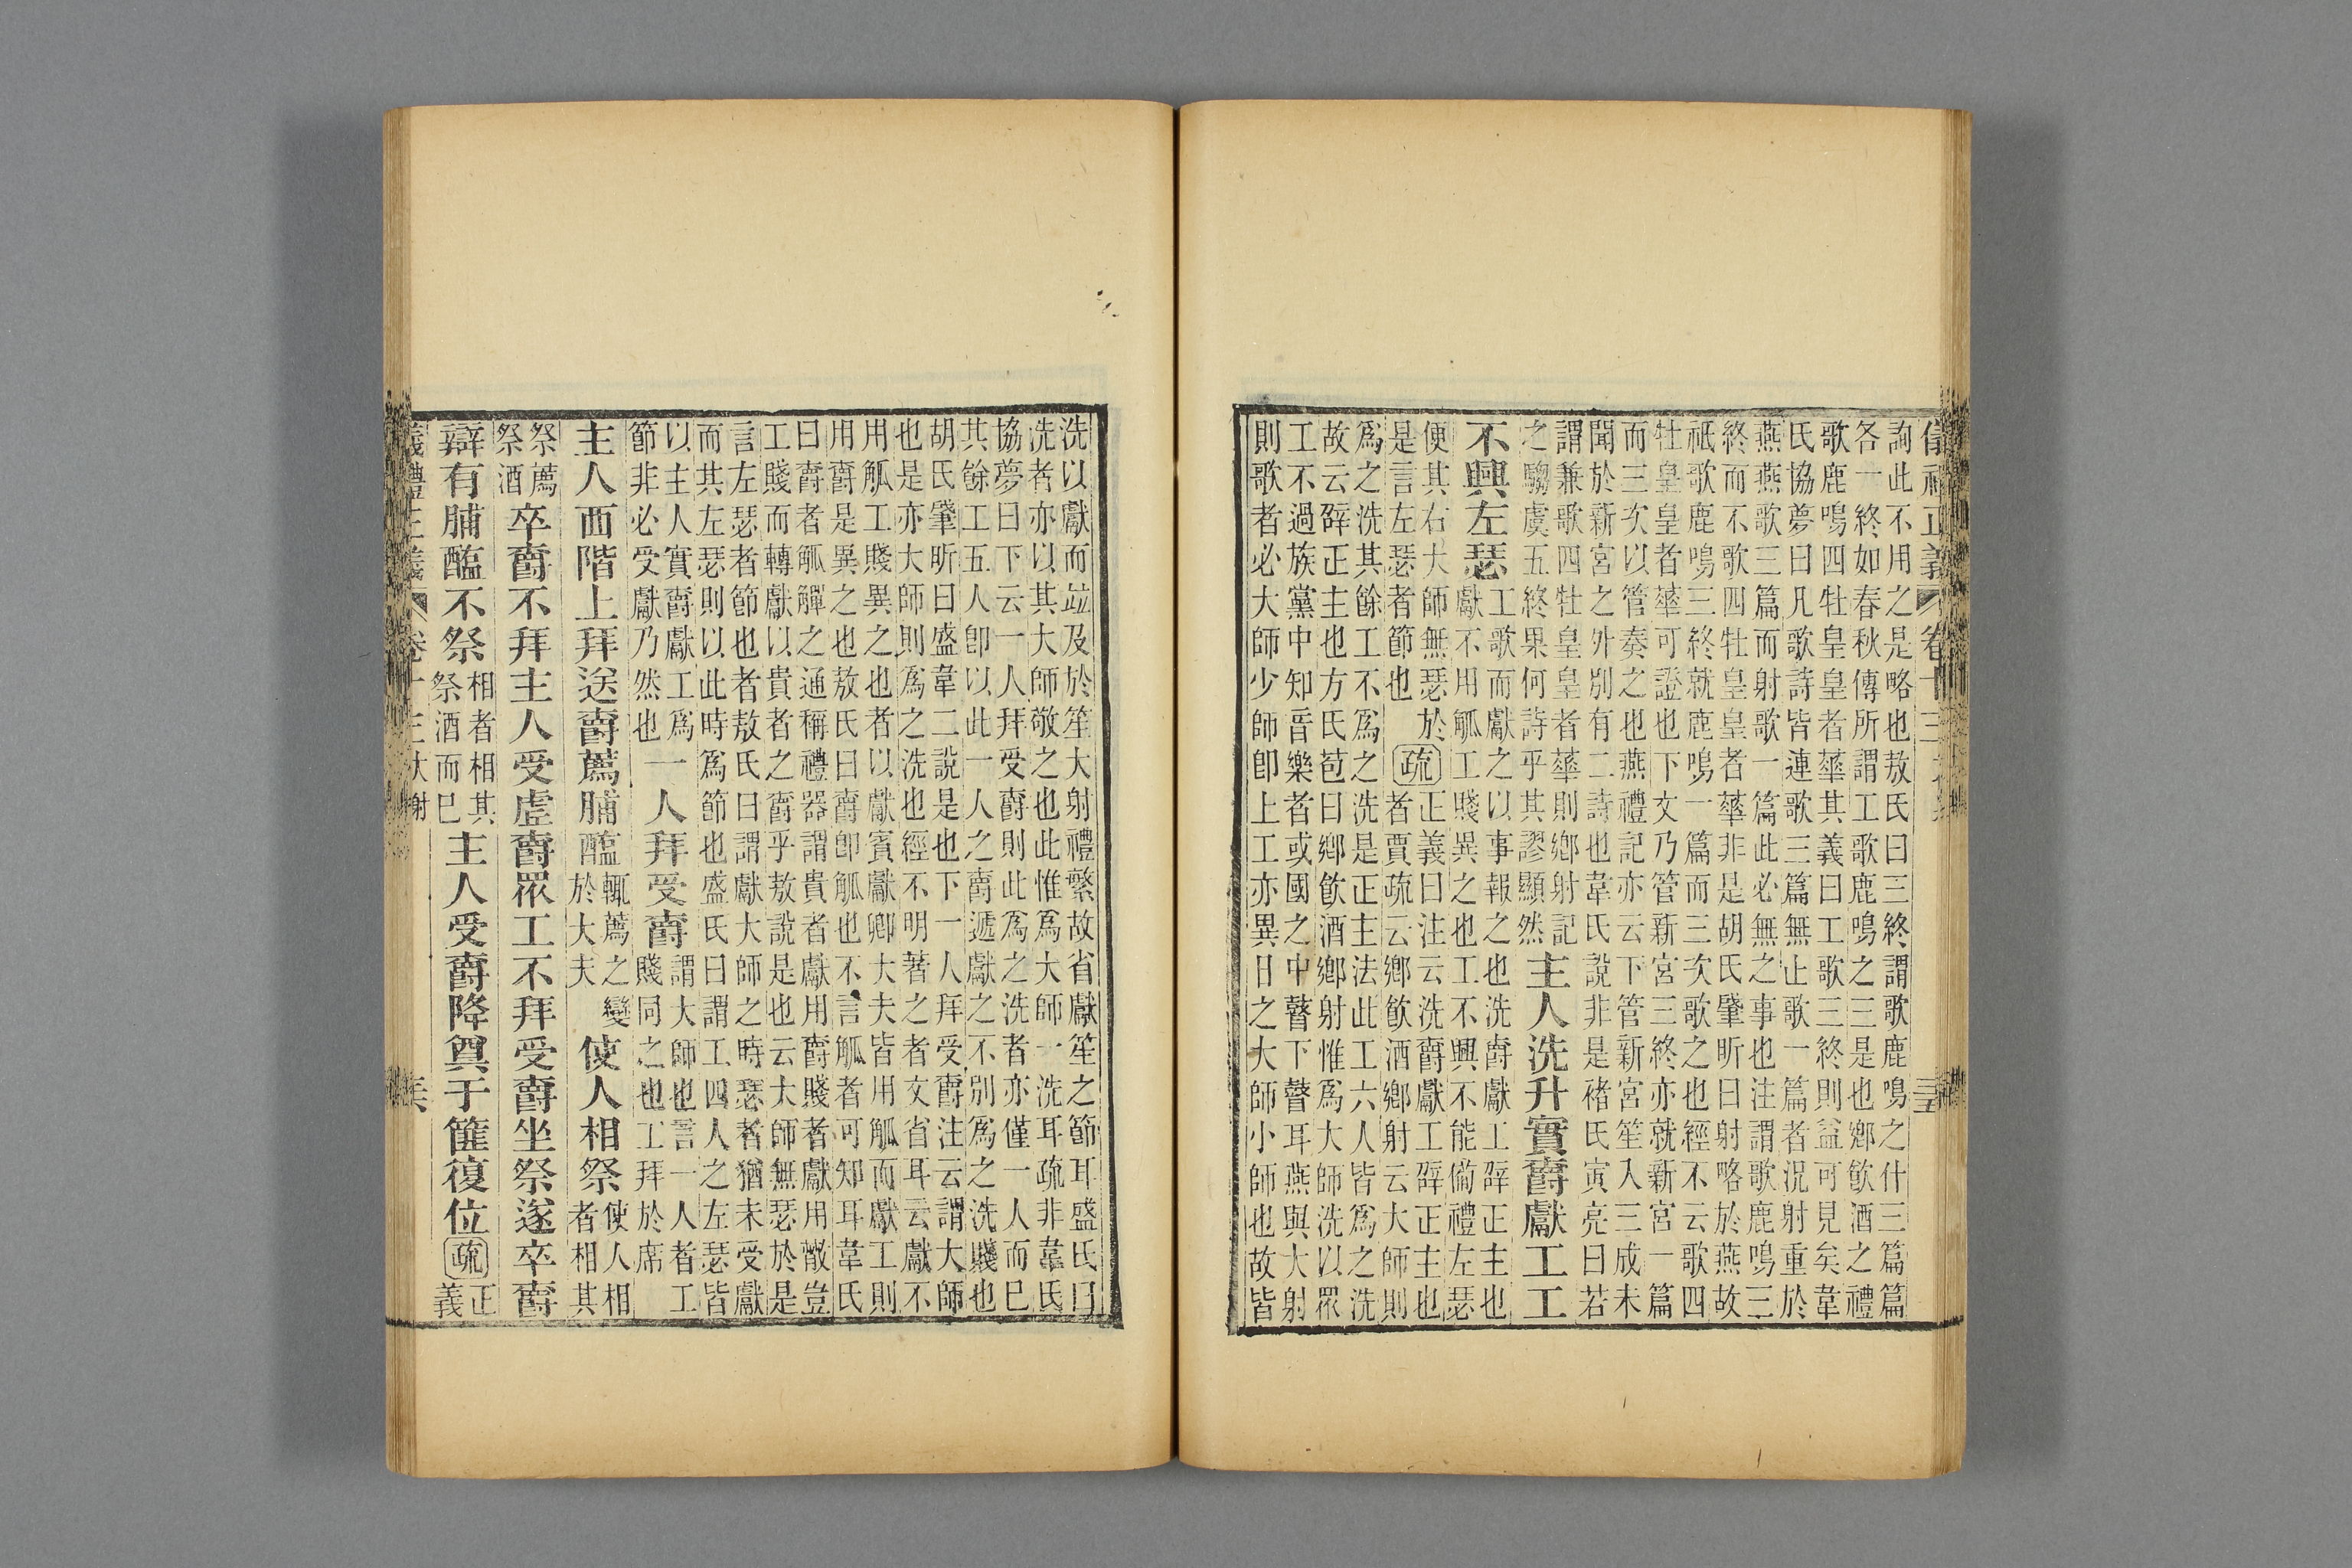 儀禮正義 卷十三 大射 三五
詢此不用之是略也敖氏曰三終謂歌鹿鳴之什三篇篇
各一終如春秋傳所謂工歌鹿鳴之三是也鄉飲酒之禮
歌鹿鳴四牡皇皇者華其義曰工歌三終則益可見矣韋
氏協夢曰凡歌詩皆連歌三篇無止歌一篇者況射重於
燕燕歌三篇而射歌一篇此必無之事也注謂歌鹿鳴三
終而不歌四牡皇皇者華非是胡氏肇昕曰射略於燕故
祇歌鹿鳴三終就鹿鳴一篇而三次歌之也經不云歌四
牡皇皇者華可證也下文乃管新宮三終亦就新宮一篇
而三次以管奏之也燕禮記亦云下管新宮笙入三成未
聞於新宮之外別有二詩也韋氏說非是褚氏寅亮曰若
謂兼歌四牡皇皇者華則鄉射記
之騶虞五終果何詩乎其謬顯然
主人洗升實爵獻工工
不興左瑟
工歌而獻之以事報之也洗爵獻工辟正主也
獻不用觚工賤異之也工不興不能備禮左瑟
便其右大師無瑟於
是言左瑟者節也
疏
正義曰注云洗爵獻工辟正主也
者賈疏云鄉飲酒鄉射云大師則
爲之洗其餘工不爲之洗是正主法此工六人皆爲之洗
故云辟正主也方氏苞曰鄉飲酒鄉射惟爲大師洗以眾
工不過族黨中知音樂者或國之中瞽下瞽耳燕與大射
則歌者必大師少師卽上工亦異日之大師小師也故皆
洗以獻而竝及於笙大射禮繁故省獻笙之節耳盛氏曰
洗者亦以其大師敬之也此惟爲大師一洗耳疏非韋氏
協夢曰下云一人拜受爵則此爲之洗者亦僅一人而已
其餘工五人卽以此一人之爵遞獻之不別爲之洗賤也
胡氏肇昕曰盛韋二說是也下一人拜受爵注云謂大師
也是亦大師則爲之洗也經不明著之者文省耳云獻不
用觚工賤異之也者以獻賓獻卿大夫皆用觚而獻工則
用爵是異之也敖氏曰爵卽觚也不言觚者可知耳韋氏
曰爵者觚觶之通稱禮器謂貴者獻用爵賤者獻用散豈
工賤而轉獻以貴者之爵乎敖說是也云大師無瑟於是
言左瑟者節也者敖氏曰謂獻大師之時瑟者猶未受獻
而其左瑟則以此時爲節也盛氏曰謂工四人之左瑟皆
以主人實爵獻工爲
節非必受獻乃然也
一人拜受爵
謂大師也言一人者工
賤同之也工拜於席
主人西階上拜送爵薦脯醢
輒薦之變
於大夫
使人相祭
使人相
者相其
祭薦
祭酒
卒爵不拜主人受虛爵眾工不拜受爵坐祭遂卒爵
辯有脯醢不祭
相者相其
祭酒而已
主人受爵降奠于篚復位
疏
正
義
儀禮正義 卷十三 大射 三六